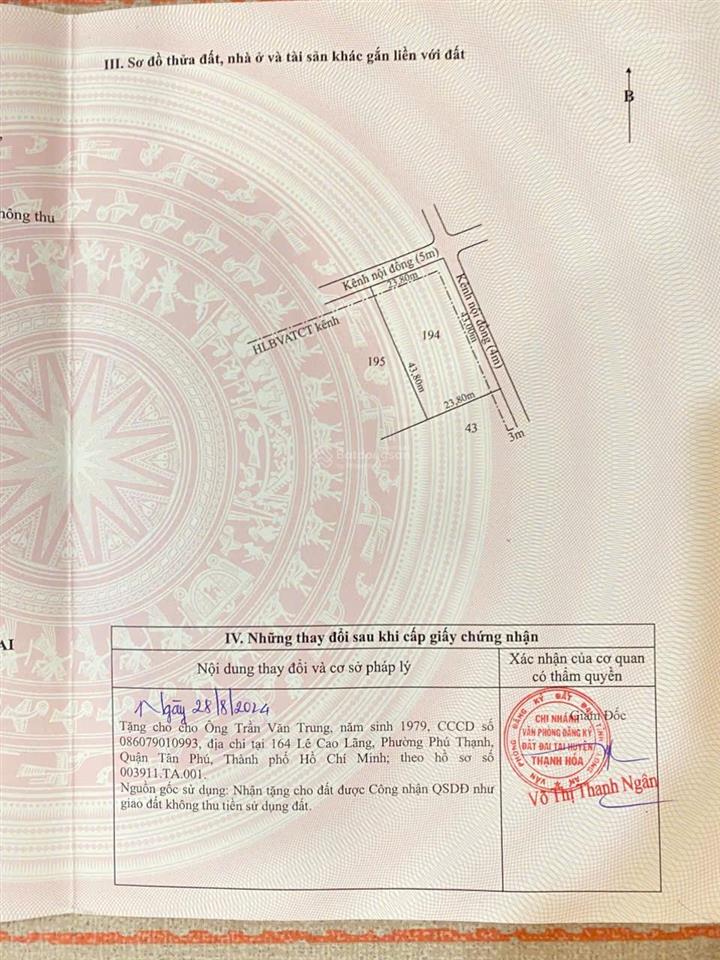 III. Sơ đồ thửa đất, nhà ở và tài sản khác gắn liền với đất
B
hông thu
Kênh nội đồng (5m)
23,80m
HLBVATCT kênh
Kênh nội đồng (4m)
43,00m
194
195
43,80m
23,80m
43
3m
Batdongsan
AI
IV. Những thay đổi sau khi cấp giấy chứng nhận
Nội dung thay đổi và cơ sở pháp lý
Xác nhận của cơ quan
có thẩm quyền
Ngày 28/8/2024
Tặng cho cho Ông Trần Văn Trung, năm sinh 1979, CCCD số
086079010993, địa chỉ tại 164 Lê Cao Lãng, Phường Phú Thạnh,
Quận Tân Phú, Thành phố Hồ Chí Minh; theo hồ sơ số
003911.TA.001.
Nguồn gốc sử dụng: Nhận tặng cho đất được Công nhận QSDĐ như
giao đất không thu tiền sử dụng đất.
Giám Đốc
VĂN PHÒNG ĐĂNG KÝ ĐẤT ĐAI TỈNH LONG AN
CHI NHÁNH
VĂN PHÒNG ĐĂNG KÝ
ĐẤT ĐAI TẠI HUYỆN
THẠNH HÓA
Võ Thị Thanh Ngân